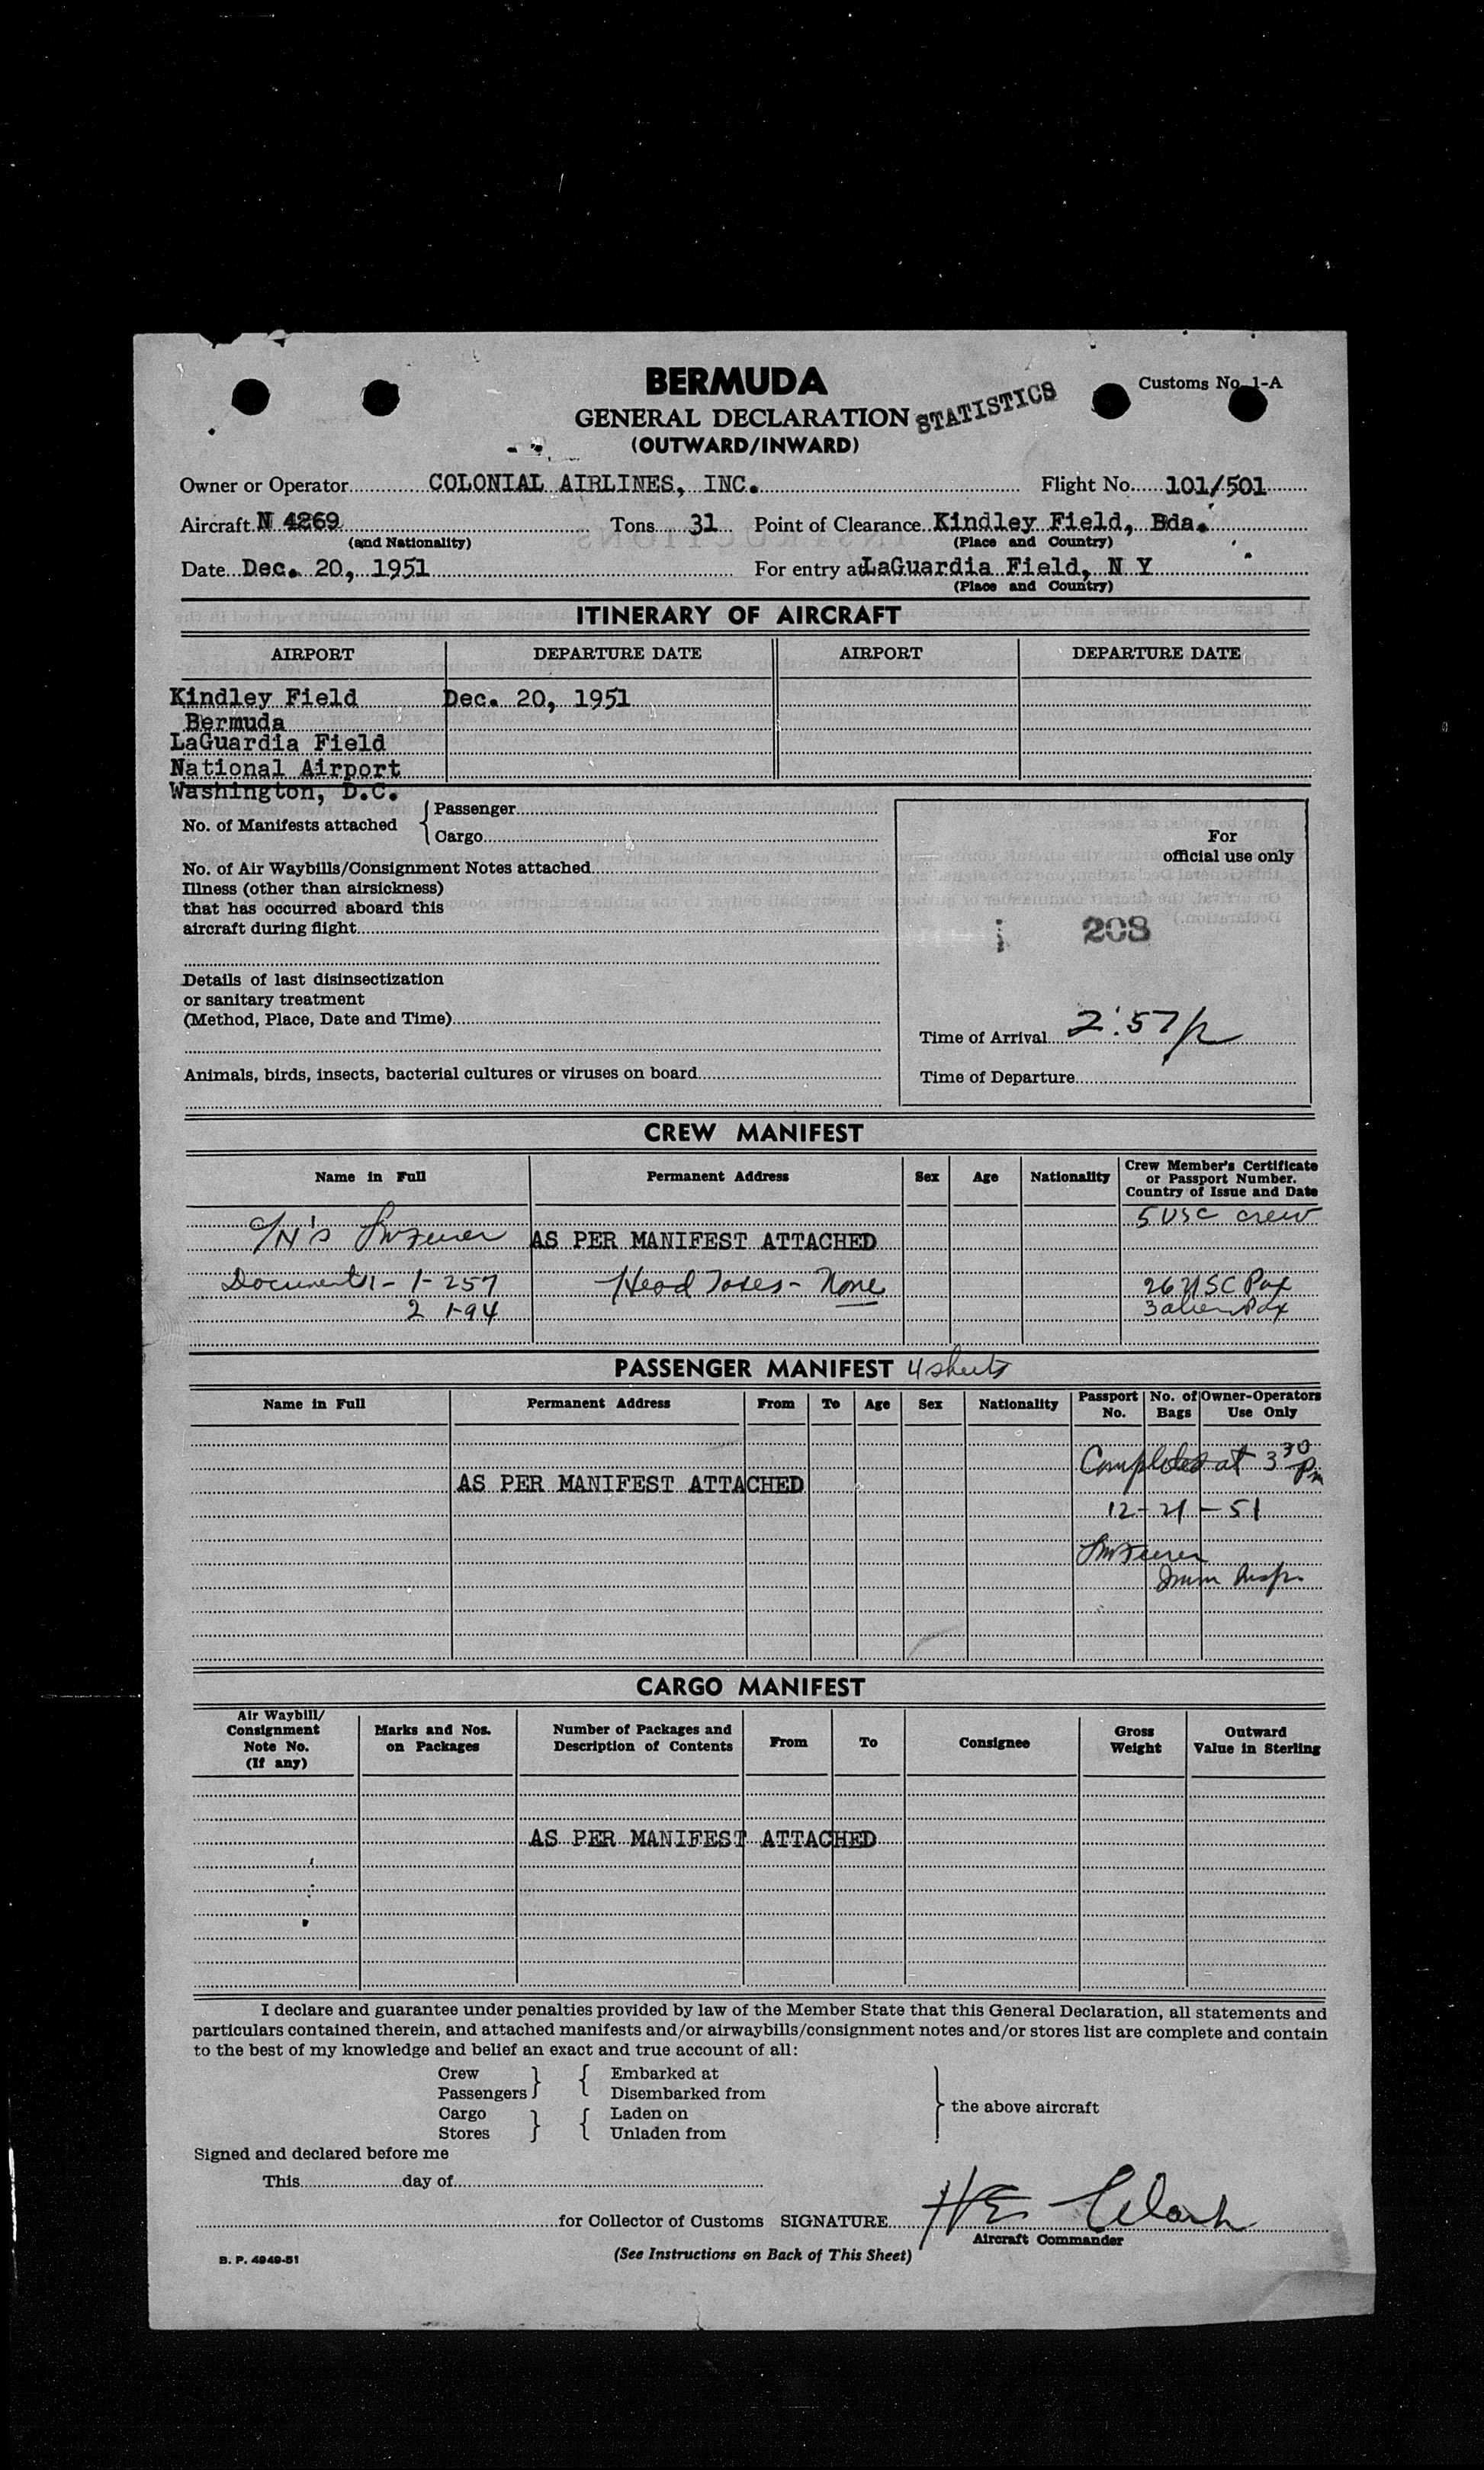 BERMUDA
Customs No. 1-A
GENERAL DECLARATION
STATISTICS
(OUTWARD/INWARD)
Owner or Operator COLONIAL AIRLINES, INC. Flight No. 101/501
Aircraft N 4269 Tons 31 Point of Clearance Kindley Field, Bda.
(and Nationality) (Place and Country)
Date Dec. 20, 1951 For entry at LaGuardia Field, N Y
(Place and Country)
ITINERARY OF AIRCRAFT
AIRPORT DEPARTURE DATE AIRPORT DEPARTURE DATE
Kindley Field Dec. 20, 1951
Bermuda
LaGuardia Field
National Airport
Washington, D.C.
No. of Manifests attached { Passenger
Cargo
No. of Air Waybills/Consignment Notes attached
Illness (other than airsickness)
that has occurred aboard this
aircraft during flight
Details of last disinsectization
or sanitary treatment
(Method, Place, Date and Time)
Animals, birds, insects, bacterial cultures or viruses on board
For
official use only
208
Time of Arrival 2:57 p
Time of Departure
CREW MANIFEST
Name in Full Permanent Address Sex Age Nationality Crew Member's Certificate
or Passport Number.
Country of Issue and Date
5 USC crew
AS PER MANIFEST ATTACHED
Documents - 1-257 Head Taxes - None 26 USC Pax
2 1-94 3 alien Pax
PASSENGER MANIFEST 4 sheets
Name in Full Permanent Address From To Age Sex Nationality Passport No. No. of Bags Owner-Operators Use Only
Completed at 3 30 Pm
AS PER MANIFEST ATTACHED
12-21-51
Imm Insp.
CARGO MANIFEST
Air Waybill/ Consignment Note No. (If any) Marks and Nos. on Packages Number of Packages and Description of Contents From To Consignee Gross Weight Outward Value in Sterling
AS PER MANIFEST ATTACHED
I declare and guarantee under penalties provided by law of the Member State that this General Declaration, all statements and
particulars contained therein, and attached manifests and/or airwaybills/consignment notes and/or stores list are complete and contain
to the best of my knowledge and belief an exact and true account of all:
Crew } { Embarked at
Passengers Disembarked from
Cargo } { Laden on } the above aircraft
Stores Unladen from
Signed and declared before me
This day of
for Collector of Customs SIGNATURE HE Clark
Aircraft Commander
B. P. 4949-51
(See Instructions on Back of This Sheet)